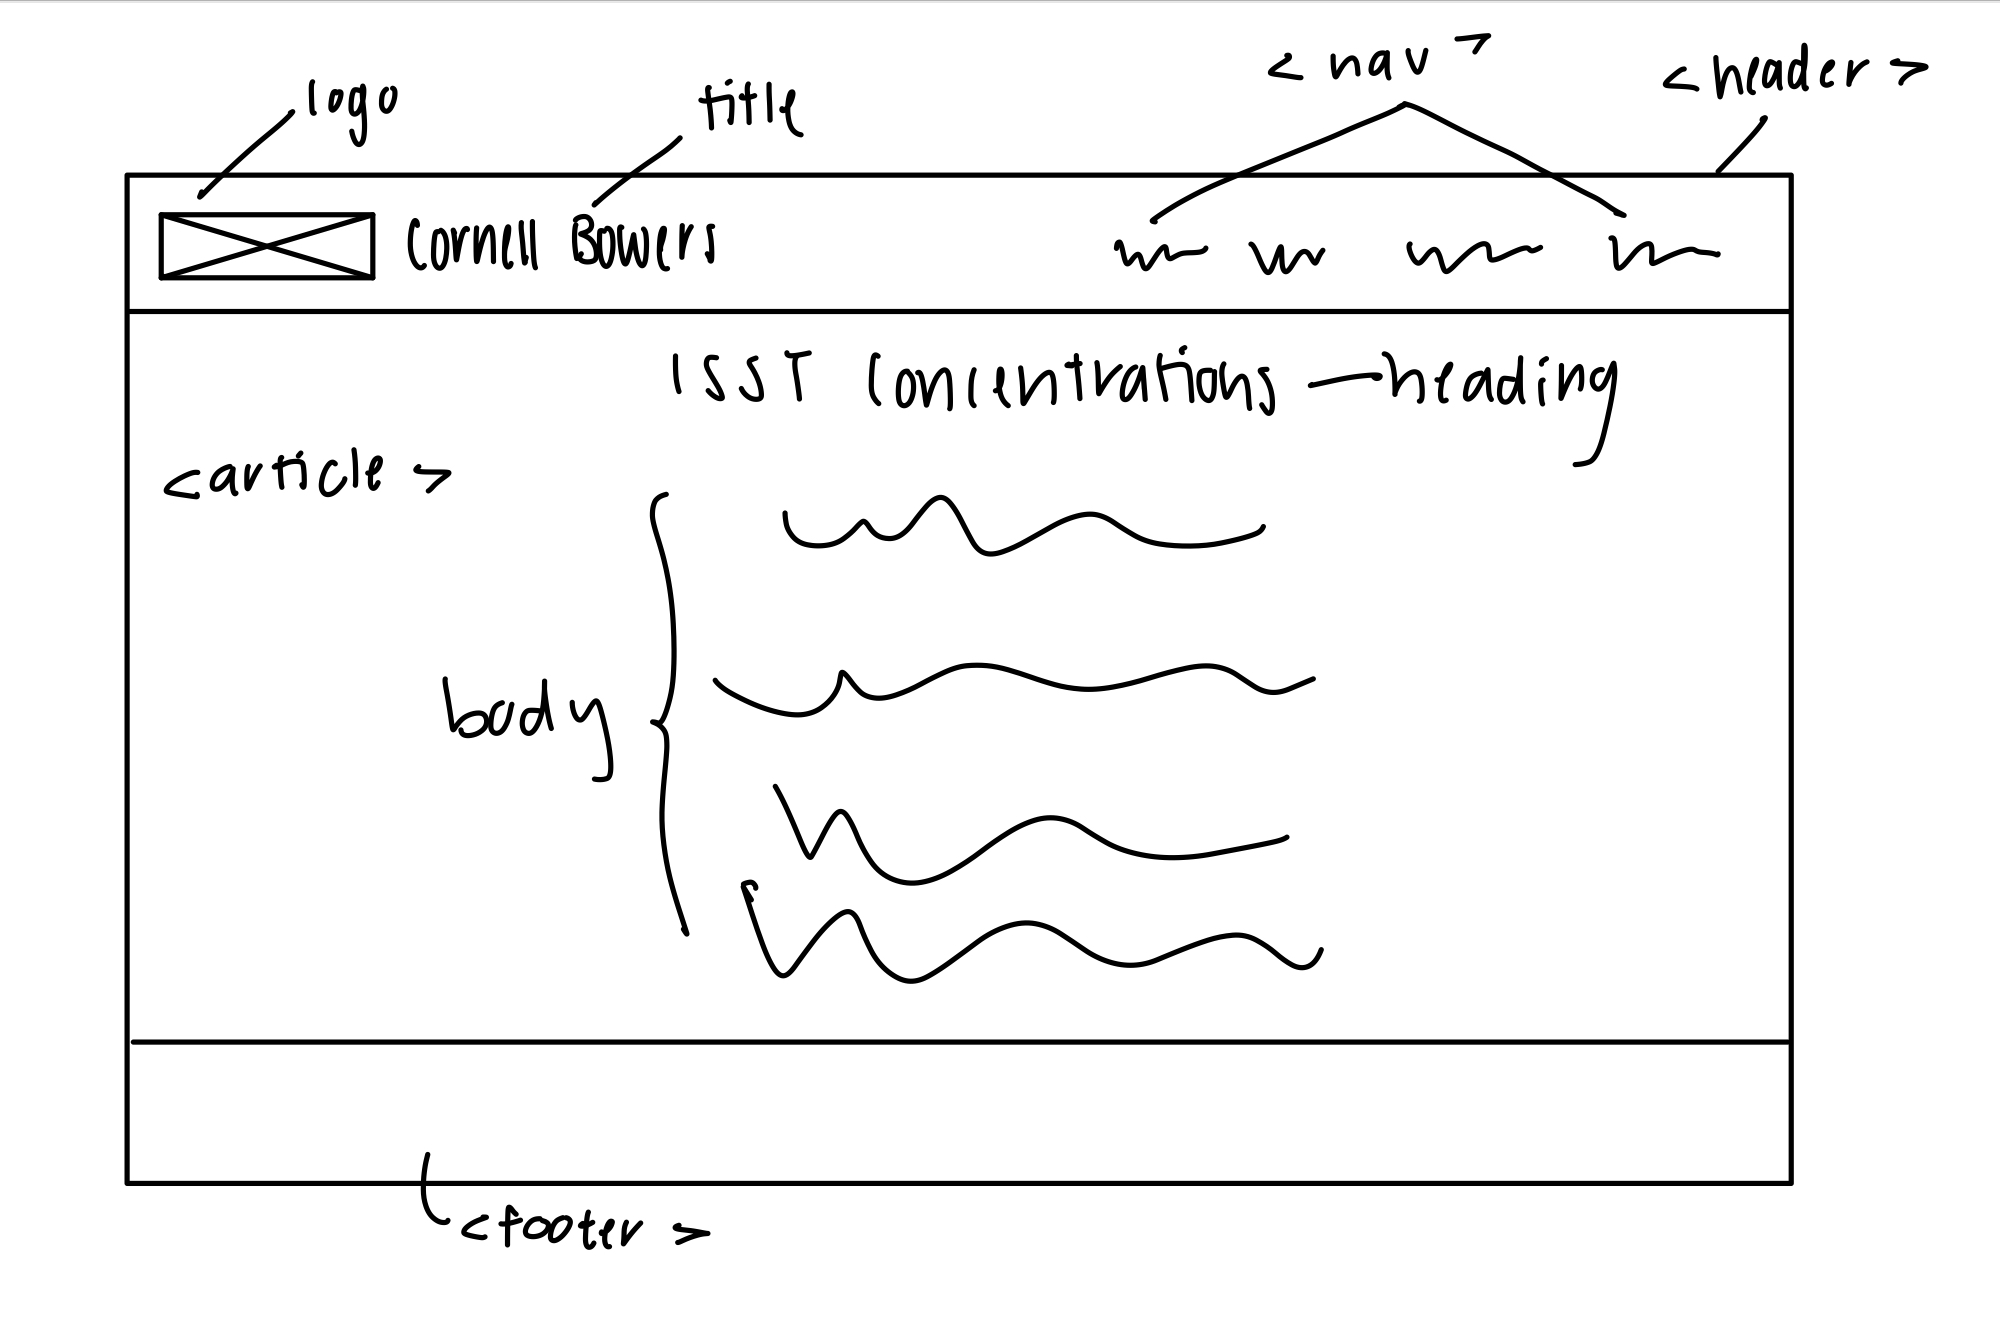 logo
title
<nav>
<header>
Cornell Bowers
ISST Concentrations — heading
<article>
body
<footer>